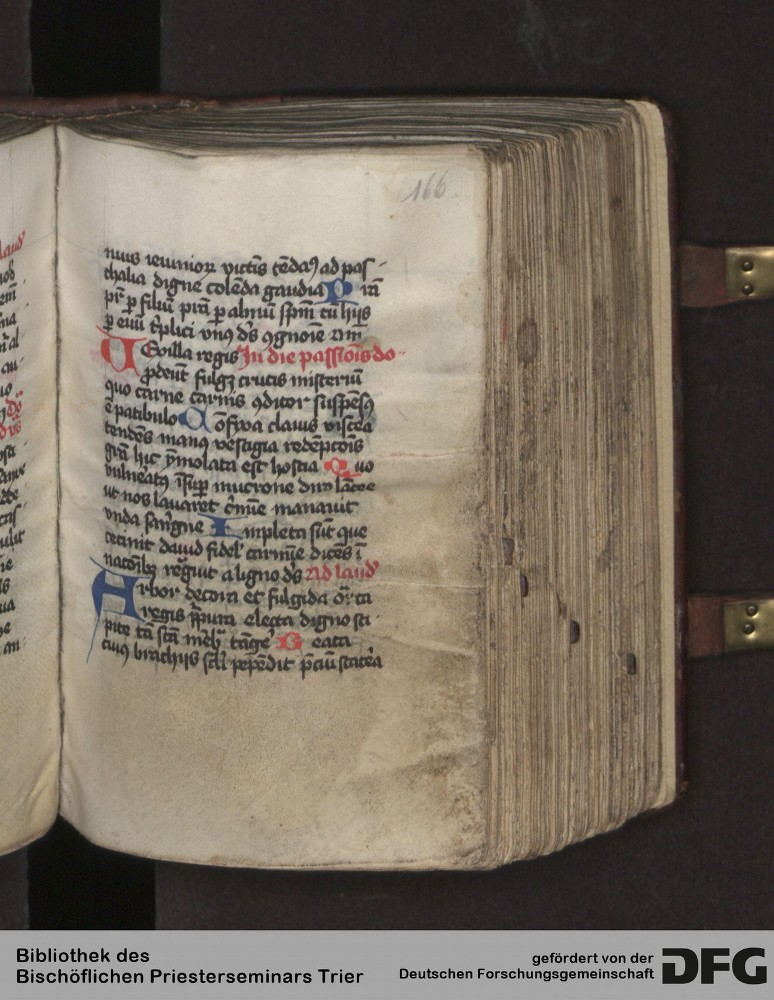 166
nuus ieiunior victis tēdaꝰ ad pas-
chalia digne colēda gaudia P rā
pr̄ p filiū prā p almū spm̄ cū hijs
p euū t̄plici vnꝰ ds̄ ꝯgnoīe am̄
Uexilla regis In die passiōis do-
ꝓdeūt fulgꝫ crucis misteriū
quo carne carnis ꝯditor suspēsꝰ
ē patibulo Cōfixa clauis viscēa
tendēs manꝰ vestigia redēptōis
grā hic ymolata est hostia Quo
vulneratꝰ īsup mucrone diro lācee
ut nos lauaret c̄mīe manauit
vnda sangne Impleta sūt que
cecinit dauid fidel' carmīe dicēs ī
natōibꝫ regnāuit a ligno ds̄ Ad laud'
Arbor decora et fulgida or̄ta
regis p̄pura electa digno sti-
pite tā sc̄a mēb' tāge' Beata
cuiꝰ brachijs scl'i pepēdit p̄ciū statēa
laud'
Bibliothek des
Bischöflichen Priesterseminars Trier
gefördert von der
Deutschen Forschungsgemeinschaft
DFG